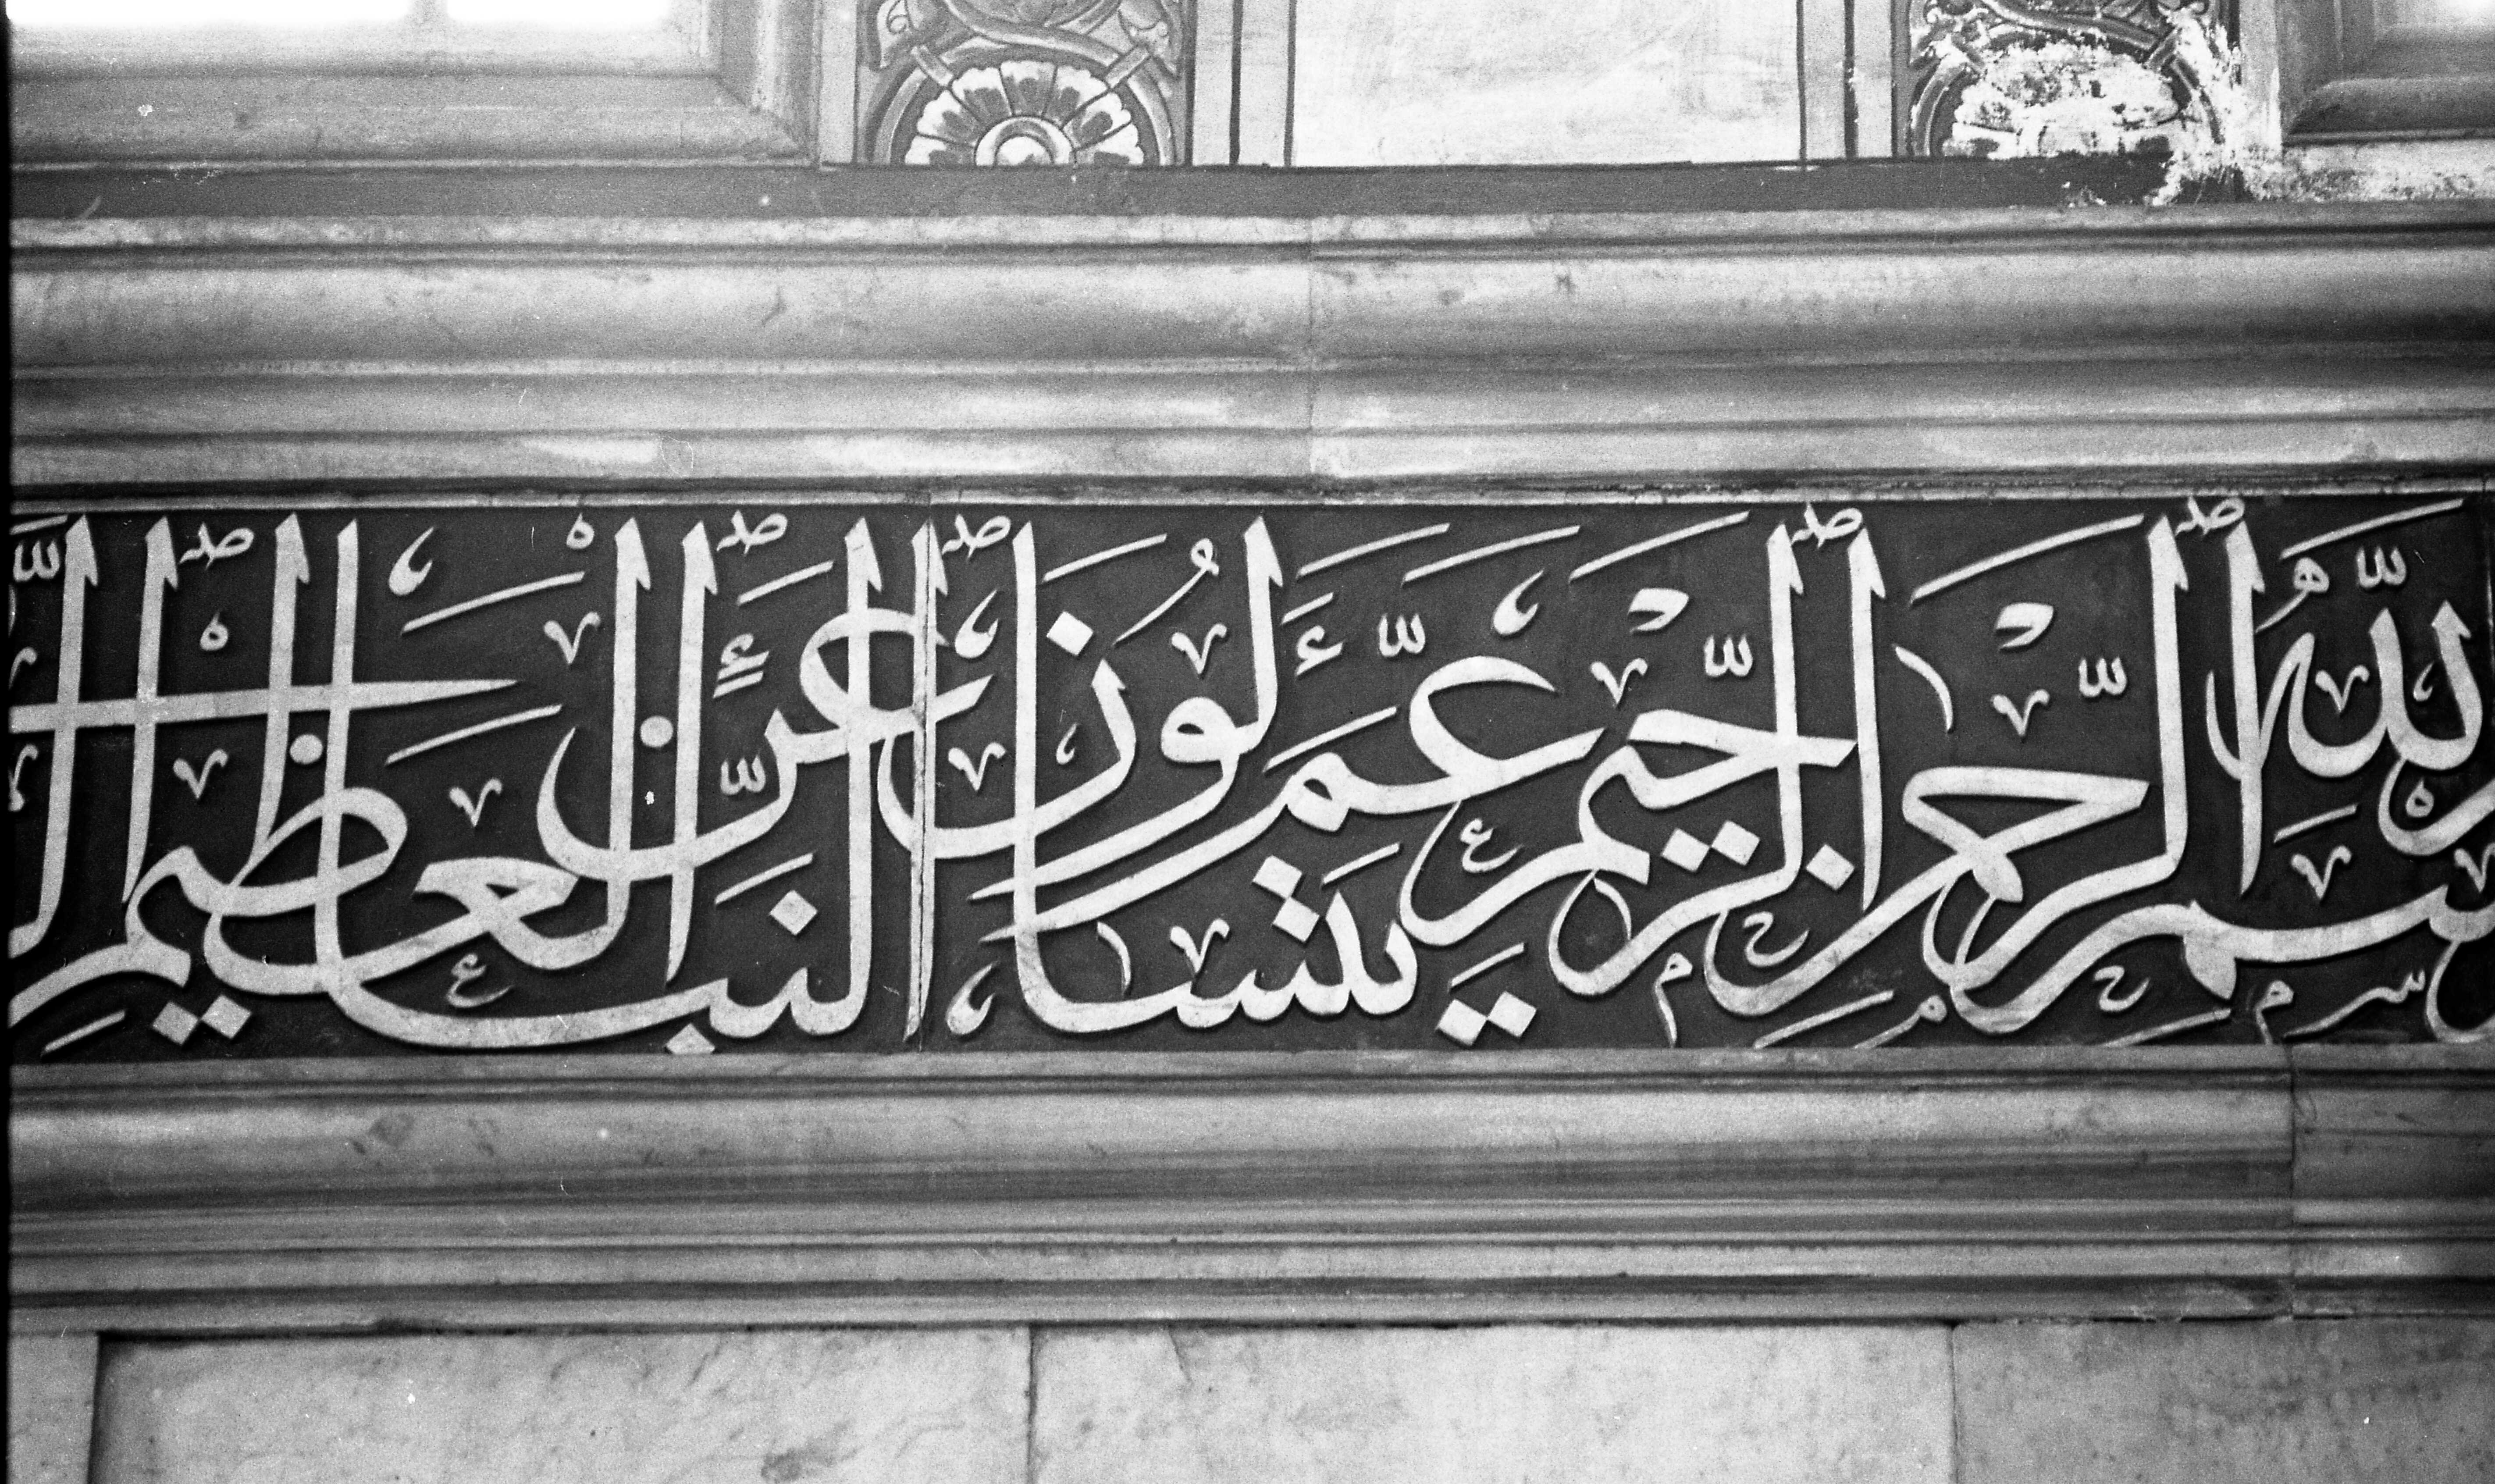 بسم الله الرحمن الرحيم عم يتساءلون عن النبإ العظيم